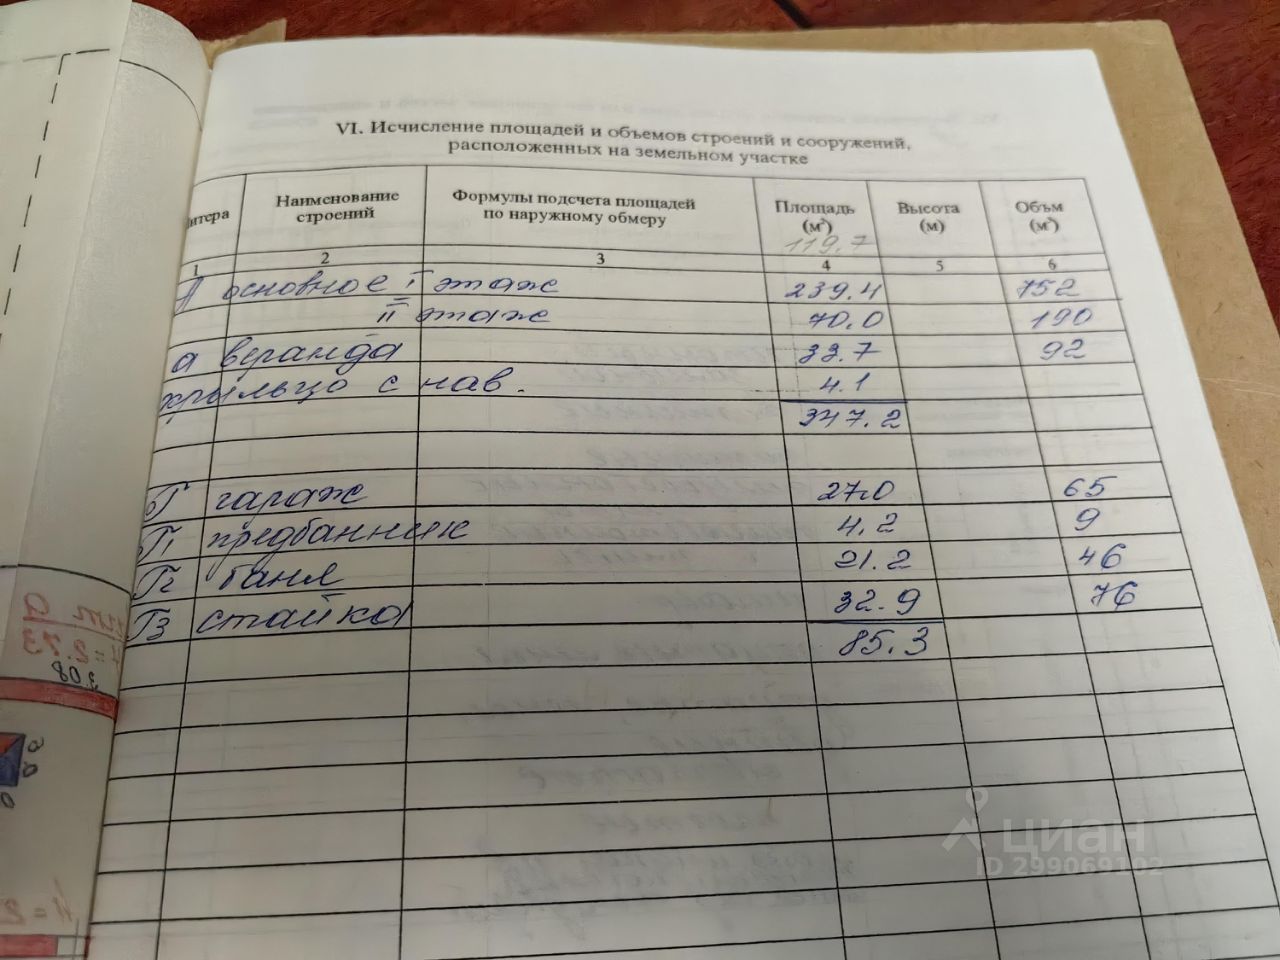 VI. Исчисление площадей и объемов строений и сооружений,
расположенных на земельном участке
итера Наименование строений Формулы подсчета площадей по наружному обмеру Площадь (м²) Высота (м) Объм (м³)
119.7
1 2 3 4 5 6
А основное I этаж 239.4 752
II этаж 70.0 190
а веранда 33.7 92
крыльцо с нав. 4.1
347.2
Г гараж 27.0 65
Г1 предбанник 4.2 9
Г2 баня 21.2 46
Г3 стайка 32.9 76
85.3
циан
ID 299069102